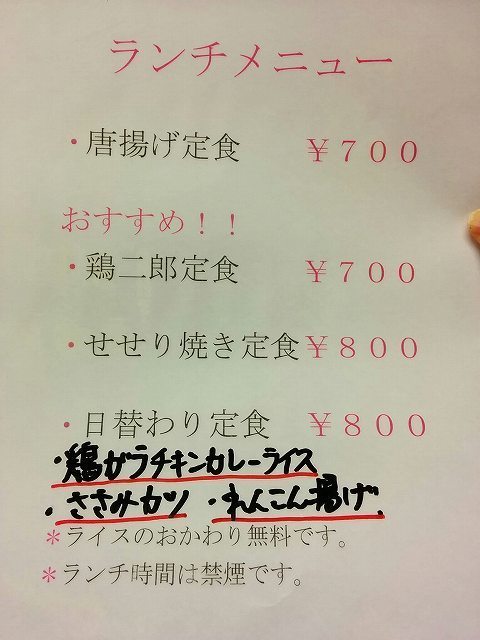 ランチメニュー
・唐揚げ定食 ￥７００
おすすめ！！
・鶏二郎定食 ￥７００
・せせり焼き定食 ￥８００
・日替わり定食 ￥８００
・鶏がラチキンカレーライス
・ささみカツ ・れんこん揚げ
＊ライスのおかわり無料です。
＊ランチ時間は禁煙です。